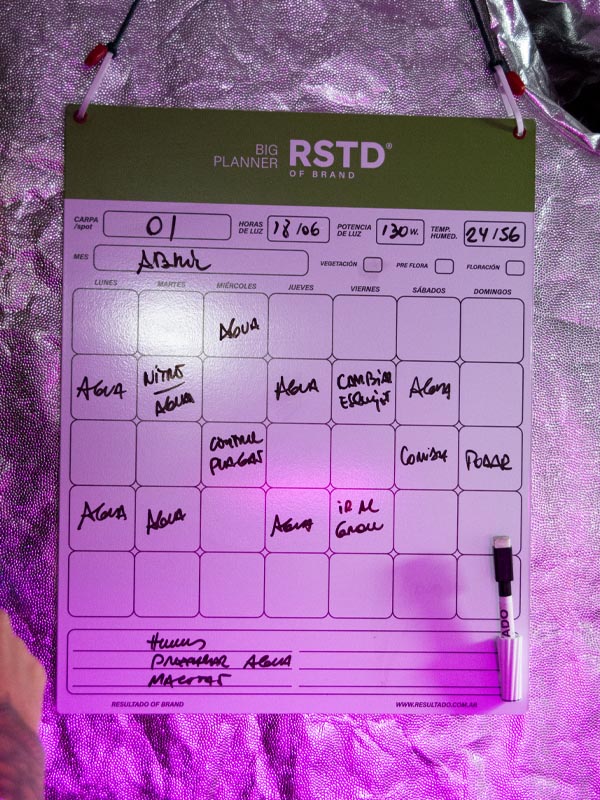 BIG
PLANNER
RSTD®
OF BRAND
CARPA
/spot
01
HORAS
DE LUZ
18/06
POTENCIA
DE LUZ
130 W.
TEMP.
HUMED.
24/56
MES
ABRIL
VEGETACIÓN
PRE FLORA
FLORACIÓN
LUNES MARTES MIÉRCOLES JUEVES VIERNES SÁBADOS DOMINGOS
AGUA
AGUA
NITRO
AGUA
AGUA
CAMBIAR
ESQUEJES
AGUA
CONTROL
PLAGAS
COMIDA
PODAR
AGUA
AGUA
AGUA
IR AL
GROW
HUMUS
PREPARAR AGUA
MACETAS
RESULTADO OF BRAND
WWW.RESULTADO.COM.AR
ADO